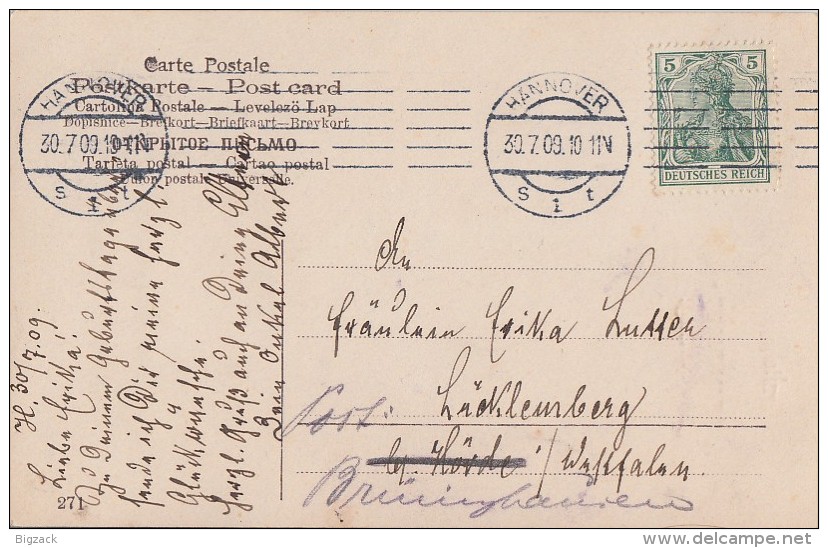 Carte Postale
Postkarte – Post card
Cartolina Postale – Levelező Lap
Dopisnice – Brefkort – Briefkaart – Brevkort
ОТКРЫТОЕ ПИСЬМО
Tarjeta postal – Cartao postal
Union postale universelle.
HANNOVER
30.7.09.10-11V
S 1 t
HANNOVER
30.7.09.10-11V
S 1 t
5 5
DEUTSCHES REICH
H. 30/7.09.
Liebe Erika!
Zu Deinem Geburtstage
sende ich Dir meine herzl.
Glückwünsche.
Herzl. Gruß auch an Deine Eltern
Dein Onkel Albert
An
Fräulein Erika Lutter
Lücklemberg
Post:
by. Hörde / Westfalen
Brünninghausen
271
Bigzack
delcampe.net